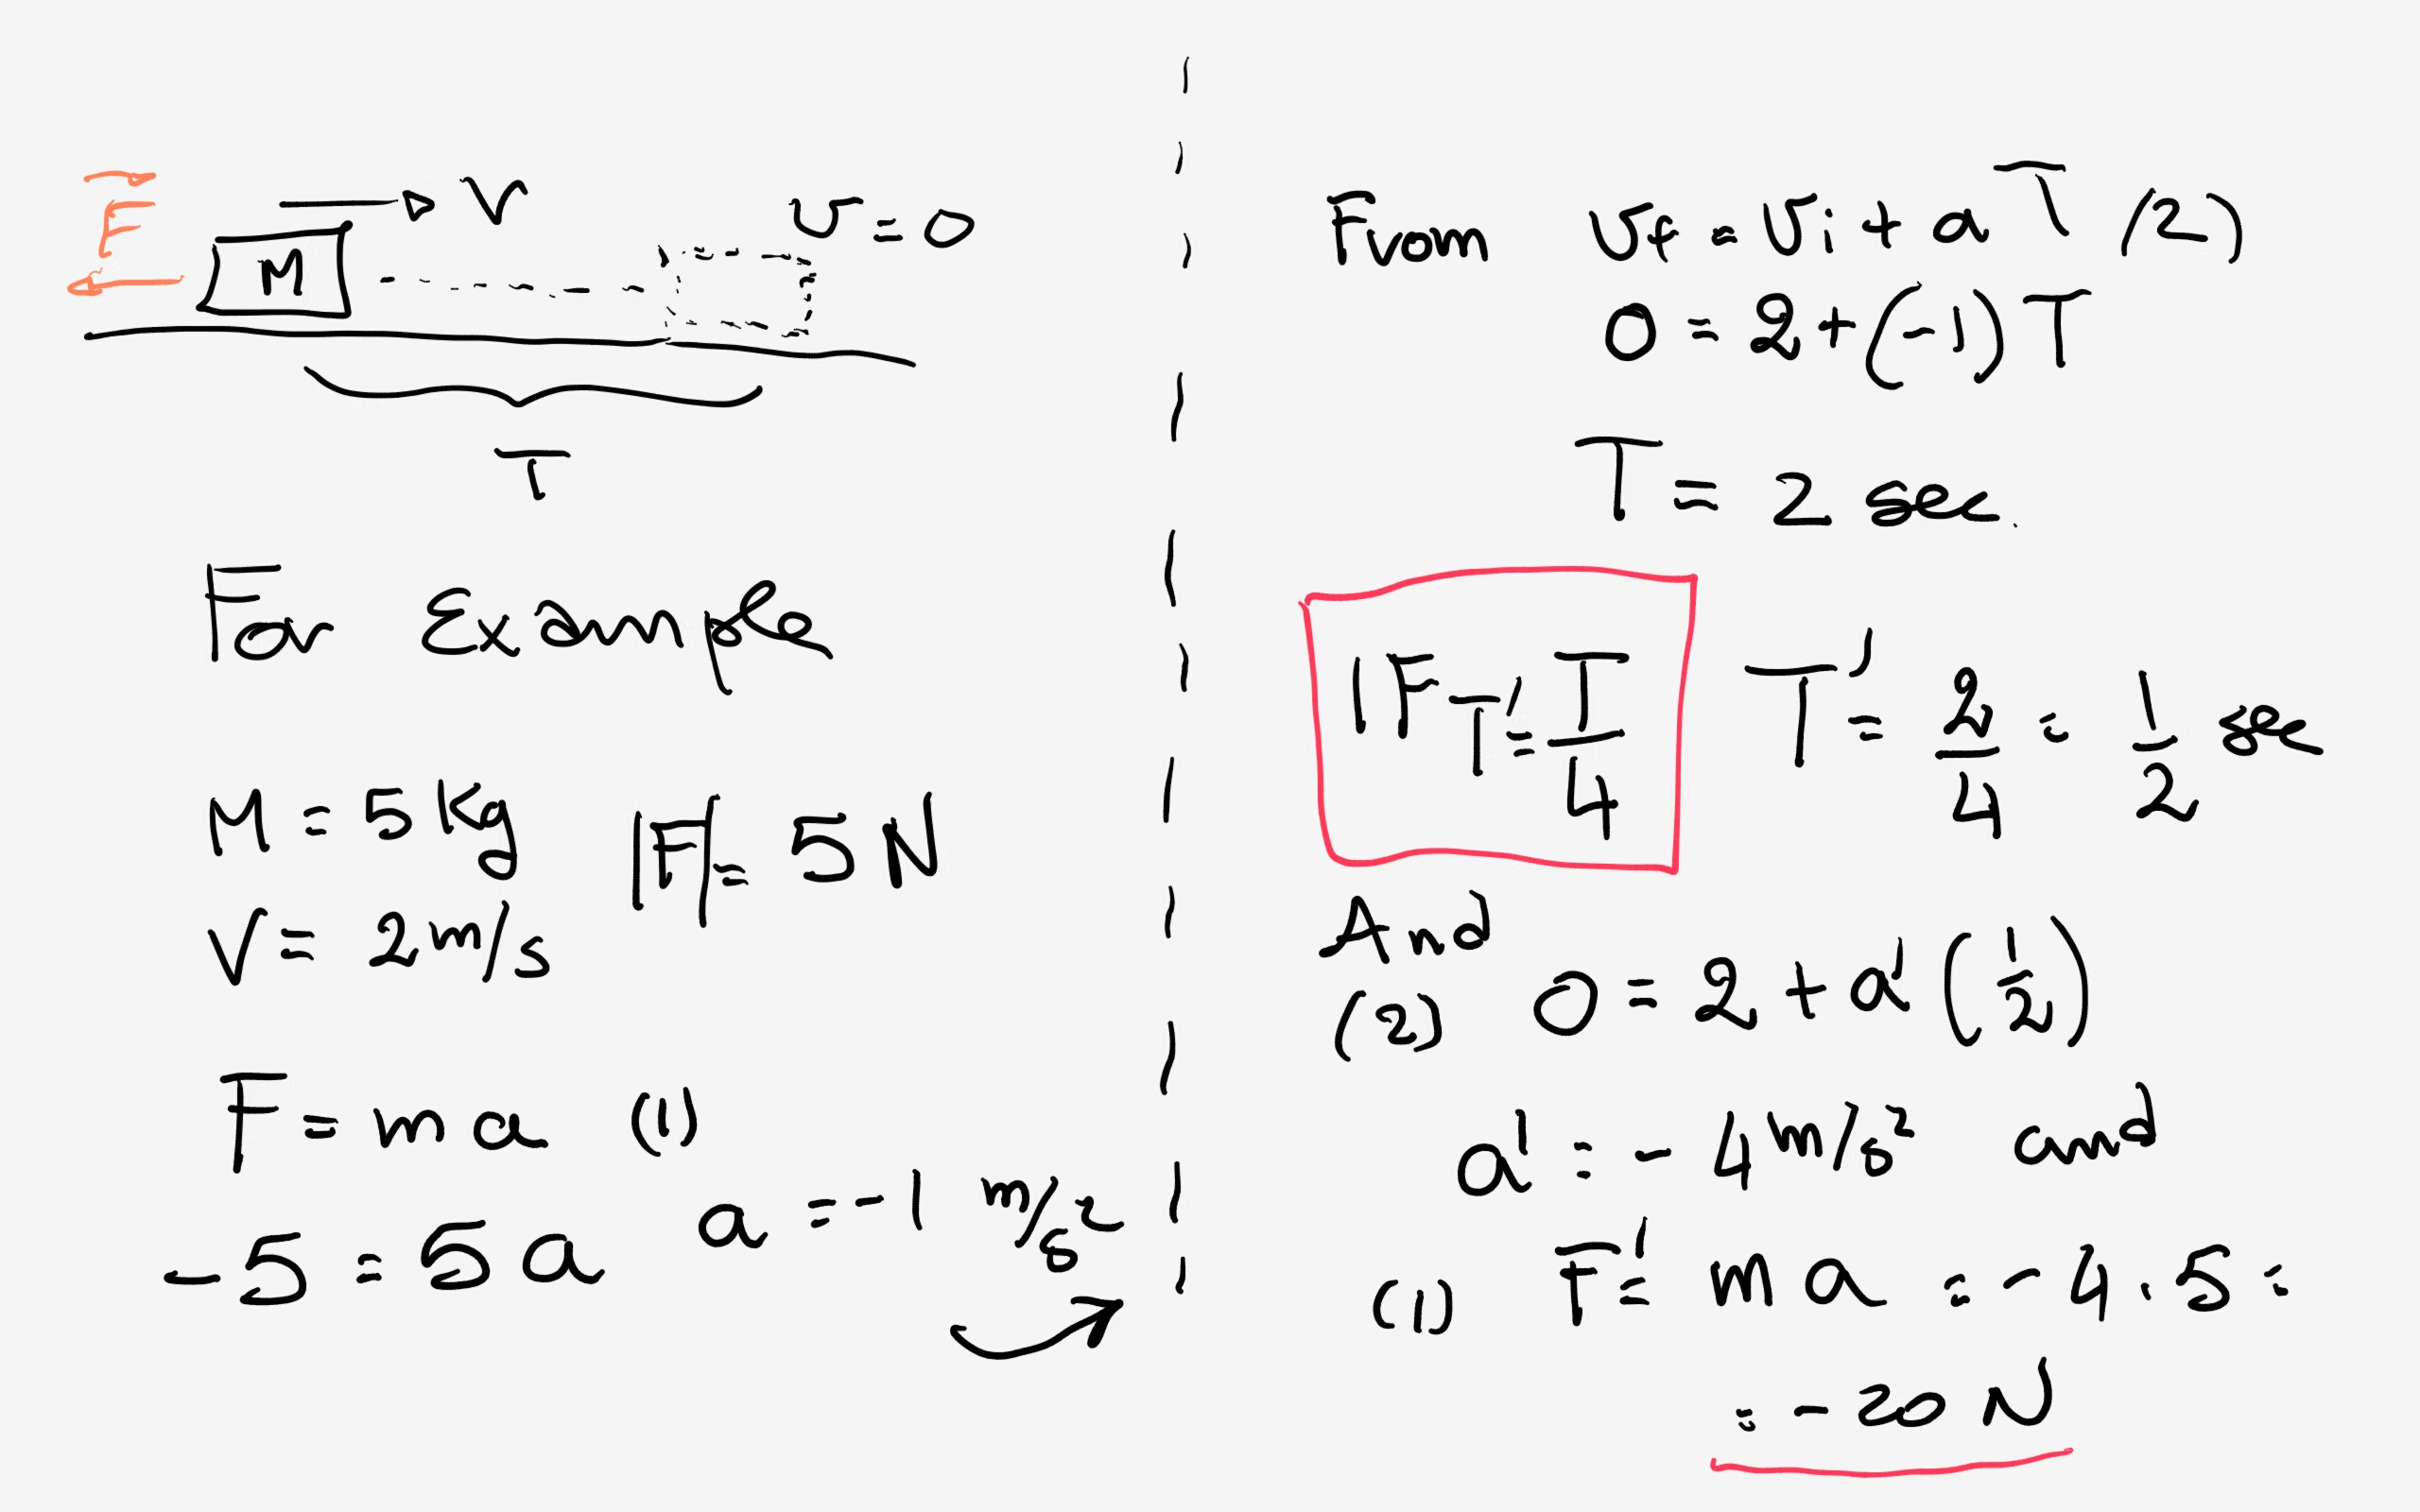 F V v = 0
M
T
For Example
M = 5 Kg |F| = 5 N
V = 2 m/s
F = m a (1)
-5 = 5 a a = -1 m/s²
From vf = vi + a T (2)
0 = 2 + (-1) T
T = 2 sec.
IF T' = T/4 T' = 2/4 = 1/2 sec
And
(2) 0 = 2 + a' (1/2)
a' = - 4 m/s² and
(1) F' = m a = - 4 . 5 =
= - 20 N